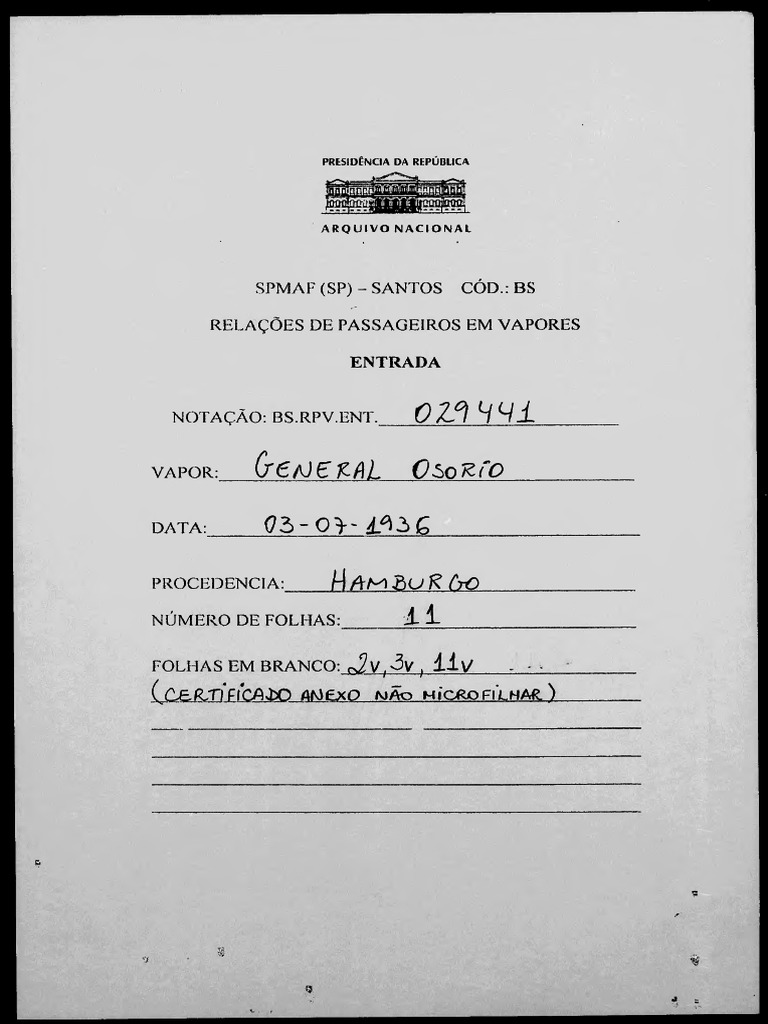 PRESIDÊNCIA DA REPÚBLICA
ARQUIVO NACIONAL
SPMAF (SP) – SANTOS CÓD.: BS
RELAÇÕES DE PASSAGEIROS EM VAPORES
ENTRADA
NOTAÇÃO: BS.RPV.ENT. 029441
VAPOR: GENERAL OSORIO
DATA: 03-07-1936
PROCEDENCIA: HAMBURGO
NÚMERO DE FOLHAS: 11
FOLHAS EM BRANCO: 2v, 3v, 11v
(CERTIFICADO ANEXO NÃO MICROFILHAR)